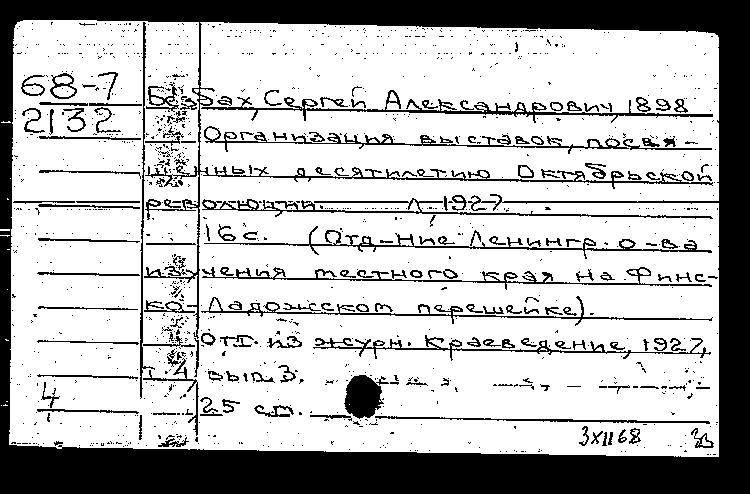 68-7
2132
Безбах, Сергей Александрович, 1898
Организация выставок, посвя-
щенных десятилетию Октябрьской
революции. Л. 1927.
16 с. (Отд-ние Ленингр. о-ва
изучения местного края на Финс-
ко-Ладожском перешейке).
Отт. из журн. Краеведение, 1927,
т. 4, вып. 3.
4
25 см.
3XII68